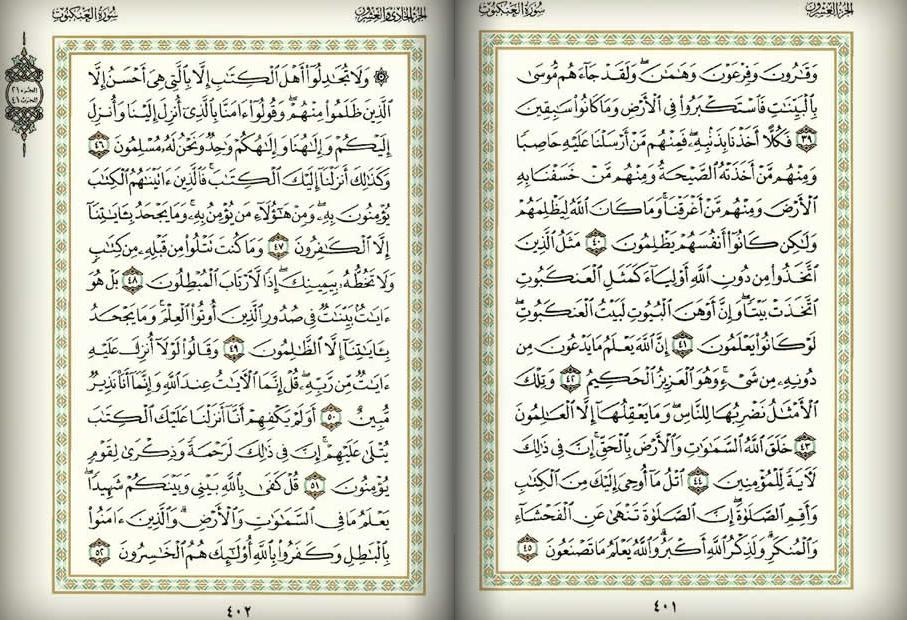 الجُزْءُ العِشْرُونَ
سُورَةُ العَنكَبُوتِ
وَقَٰرُونَ وَفِرْعَوْنَ وَهَٰمَٰنَ ۖ وَلَقَدْ جَآءَهُم مُّوسَىٰ
بِٱلْبَيِّنَٰتِ فَٱسْتَكْبَرُوا۟ فِى ٱلْأَرْضِ وَمَا كَانُوا۟ سَٰبِقِينَ
٣٩ فَكُلًّا أَخَذْنَا بِذَنۢبِهِۦ ۖ فَمِنْهُم مَّنْ أَرْسَلْنَا عَلَيْهِ حَاصِبًا
وَمِنْهُم مَّنْ أَخَذَتْهُ ٱلصَّيْحَةُ وَمِنْهُم مَّنْ خَسَفْنَا بِهِ
ٱلْأَرْضَ وَمِنْهُم مَّنْ أَغْرَقْنَا ۚ وَمَا كَانَ ٱللَّهُ لِيَظْلِمَهُمْ
وَلَٰكِن كَانُوٓا۟ أَنفُسَهُمْ يَظْلِمُونَ ٤٠ مَثَلُ ٱلَّذِينَ
ٱتَّخَذُوا۟ مِن دُونِ ٱللَّهِ أَوْلِيَآءَ كَمَثَلِ ٱلْعَنكَبُوتِ
ٱتَّخَذَتْ بَيْتًا ۖ وَإِنَّ أَوْهَنَ ٱلْبُيُوتِ لَبَيْتُ ٱلْعَنكَبُوتِ ۖ
لَوْ كَانُوا۟ يَعْلَمُونَ ٤١ إِنَّ ٱللَّهَ يَعْلَمُ مَا يَدْعُونَ مِن
دُونِهِۦ مِن شَىْءٍ ۚ وَهُوَ ٱلْعَزِيزُ ٱلْحَكِيمُ ٤٢ وَتِلْكَ
ٱلْأَمْثَٰلُ نَضْرِبُهَا لِلنَّاسِ ۖ وَمَا يَعْقِلُهَآ إِلَّا ٱلْعَٰلِمُونَ
٤٣ خَلَقَ ٱللَّهُ ٱلسَّمَٰوَٰتِ وَٱلْأَرْضَ بِٱلْحَقِّ ۚ إِنَّ فِى ذَٰلِكَ
لَءَايَةً لِّلْمُؤْمِنِينَ ٤٤ ٱتْلُ مَآ أُوحِىَ إِلَيْكَ مِنَ ٱلْكِتَٰبِ
وَأَقِمِ ٱلصَّلَوٰةَ ۖ إِنَّ ٱلصَّلَوٰةَ تَنْهَىٰ عَنِ ٱلْفَحْشَآءِ
وَٱلْمُنكَرِ ۗ وَلَذِكْرُ ٱللَّهِ أَكْبَرُ ۗ وَٱللَّهُ يَعْلَمُ مَا تَصْنَعُونَ ٤٥
٤٠١
الجُزْءُ الحَادِي وَالعِشْرُونَ
سُورَةُ العَنكَبُوتِ
۞ وَلَا تُجَٰدِلُوٓا۟ أَهْلَ ٱلْكِتَٰبِ إِلَّا بِٱلَّتِى هِىَ أَحْسَنُ إِلَّا
ٱلَّذِينَ ظَلَمُوا۟ مِنْهُمْ ۖ وَقُولُوٓا۟ ءَامَنَّا بِٱلَّذِىٓ أُنزِلَ إِلَيْنَا وَأُنزِلَ
إِلَيْكُمْ وَإِلَٰهُنَا وَإِلَٰهُكُمْ وَٰحِدٌ وَنَحْنُ لَهُۥ مُسْلِمُونَ ٤٦
وَكَذَٰلِكَ أَنزَلْنَآ إِلَيْكَ ٱلْكِتَٰبَ ۚ فَٱلَّذِينَ ءَاتَيْنَٰهُمُ ٱلْكِتَٰبَ
يُؤْمِنُونَ بِهِۦ ۖ وَمِنْ هَٰٓؤُلَآءِ مَن يُؤْمِنُ بِهِۦ ۚ وَمَا يَجْحَدُ بِـَٔايَٰتِنَآ
إِلَّا ٱلْكَٰفِرُونَ ٤٧ وَمَا كُنتَ تَتْلُوا۟ مِن قَبْلِهِۦ مِن كِتَٰبٍ
وَلَا تَخُطُّهُۥ بِيَمِينِكَ ۖ إِذًا لَّٱرْتَابَ ٱلْمُبْطِلُونَ ٤٨ بَلْ هُوَ
ءَايَٰتٌۢ بَيِّنَٰتٌ فِى صُدُورِ ٱلَّذِينَ أُوتُوا۟ ٱلْعِلْمَ ۚ وَمَا يَجْحَدُ
بِـَٔايَٰتِنَآ إِلَّا ٱلظَّٰلِمُونَ ٤٩ وَقَالُوا۟ لَوْلَآ أُنزِلَ عَلَيْهِ
ءَايَٰتٌ مِّن رَّبِّهِۦ ۖ قُلْ إِنَّمَا ٱلْءَايَٰتُ عِندَ ٱللَّهِ وَإِنَّمَآ أَنَا۠ نَذِيرٌ
مُّبِينٌ ٥٠ أَوَلَمْ يَكْفِهِمْ أَنَّآ أَنزَلْنَا عَلَيْكَ ٱلْكِتَٰبَ
يُتْلَىٰ عَلَيْهِمْ ۚ إِنَّ فِى ذَٰلِكَ لَرَحْمَةً وَذِكْرَىٰ لِقَوْمٍ
يُؤْمِنُونَ ٥١ قُلْ كَفَىٰ بِٱللَّهِ بَيْنِى وَبَيْنَكُمْ شَهِيدًا ۖ
يَعْلَمُ مَا فِى ٱلسَّمَٰوَٰتِ وَٱلْأَرْضِ ۗ وَٱلَّذِينَ ءَامَنُوا۟
بِٱلْبَٰطِلِ وَكَفَرُوا۟ بِٱللَّهِ أُو۟لَٰٓئِكَ هُمُ ٱلْخَٰسِرُونَ ٥٢
٤٠٢
الجزء ٢١
الحزب ٤١